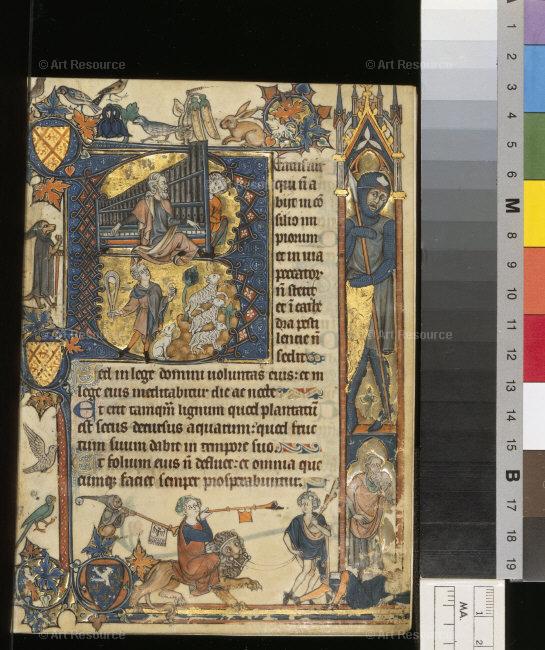 © Art Resource
© Art Resource
Beatus uir
qui ñ a
bijt in cõ
silio im
piorum
et in uia
peccator
ñ stetit
et ĩ cathe
dra pesti
lencie ñ
sedit
Sed in lege domini uoluntas eius: et in
lege eius meditabitur die ac nocte.
Et erit tamqm̃ lignum quod plantatũ
est secus decursus aquarum: quod fruc
tum suum dabit in tempore suo.
Et folium eius ñ defluet: et omnia que
cumqz faciet semper prosperabuntur.
© Art Resource
© Art Resource
A
1
2
3
4
5
6
M
8
9
10
11
12
13
14
15
B
17
18
19
MA.
1
2